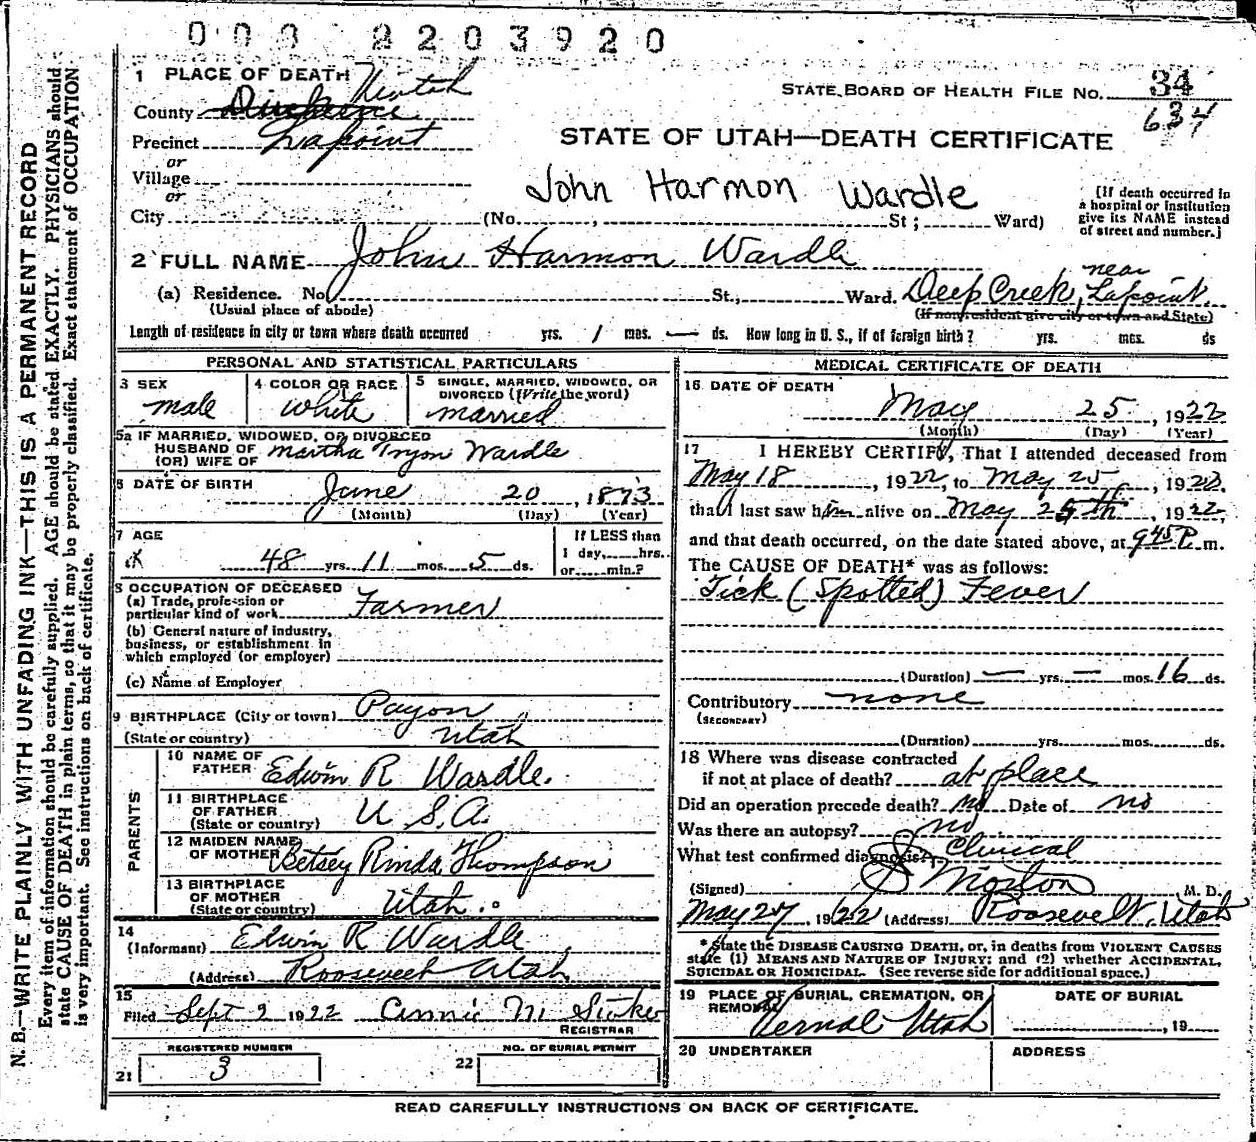 000 2203920
1 PLACE OF DEATH Uintah
STATE BOARD OF HEALTH FILE NO. 34
634
County Duchesne
Precinct Lapoint
STATE OF UTAH—DEATH CERTIFICATE
or
Village
or
John Harmon Wardle
City (No. , St ; Ward)
(If death occurred in
a hospital or institution
give its NAME instead
of street and number.)
2 FULL NAME John Harmon Wardle
(a) Residence. No. St., Ward. Deep Creek, near Lapoint.
(Usual place of abode) (If nonresident give city or town and State)
Length of residence in city or town where death occurred yrs. 1 mos. — ds. How long in U. S., if of foreign birth? yrs. mos. ds
PERSONAL AND STATISTICAL PARTICULARS
3 SEX male
4 COLOR OR RACE white
5 SINGLE, MARRIED, WIDOWED, OR
DIVORCED (Write the word)
married
5a IF MARRIED, WIDOWED, OR DIVORCED
HUSBAND OF Martha Tryon Wardle
(OR) WIFE OF
6 DATE OF BIRTH June 20, 1873
(Month) (Day) (Year)
7 AGE
48 yrs. 11 mos. 5 ds.
If LESS than
1 day, hrs.
or min.?
8 OCCUPATION OF DECEASED
(a) Trade, profession or
particular kind of work Farmer
(b) General nature of industry,
business, or establishment in
which employed (or employer)
(c) Name of Employer
9 BIRTHPLACE (City or town) Payson
(State or country) Utah
PARENTS
10 NAME OF
FATHER Edwin R Wardle.
11 BIRTHPLACE
OF FATHER
(State or country) U.S.A.
12 MAIDEN NAME
OF MOTHER Betsey Rinda Thompson
13 BIRTHPLACE
OF MOTHER
(State or country) Utah.
14
(Informant) Edwin R Wardle
(Address) Roosevelt Utah
15
Filed Sept 2 1922 Annie M
REGISTRAR
REGISTERED NUMBER
21 3
NO. OF BURIAL PERMIT
22
MEDICAL CERTIFICATE OF DEATH
16 DATE OF DEATH
May 25, 1922
(Month) (Day) (Year)
17 I HEREBY CERTIFY, That I attended deceased from
May 18, 1922, to May 25, 1922.
that I last saw him alive on May 25th, 1922,
and that death occurred, on the date stated above, at 9 45 P.m.
The CAUSE OF DEATH* was as follows:
Tick (Spotted) Fever
(Duration) — yrs. — mos. 16 ds.
Contributory none
(SECONDARY)
(Duration) yrs. mos. ds.
18 Where was disease contracted
if not at place of death? at place
Did an operation precede death? no Date of no
Was there an autopsy? no
What test confirmed diagnosis? Clinical
(Signed) Morton M. D.
May 27 1922 (Address) Roosevelt, Utah
* State the DISEASE CAUSING DEATH, or, in deaths from VIOLENT CAUSES
state (1) MEANS AND NATURE OF INJURY; and (2) whether ACCIDENTAL,
SUICIDAL OR HOMICIDAL. (See reverse side for additional space.)
19 PLACE OF BURIAL, CREMATION, OR
REMOVAL Vernal Utah
DATE OF BURIAL
, 19
20 UNDERTAKER
ADDRESS
READ CAREFULLY INSTRUCTIONS ON BACK OF CERTIFICATE.
N. B.—WRITE PLAINLY WITH UNFADING INK—THIS IS A PERMANENT RECORD
Every item of information should be carefully supplied. AGE should be stated EXACTLY. PHYSICIANS should
state CAUSE OF DEATH in plain terms, so that it may be properly classified. Exact statement of OCCUPATION
is very important. See instructions on back of certificate.